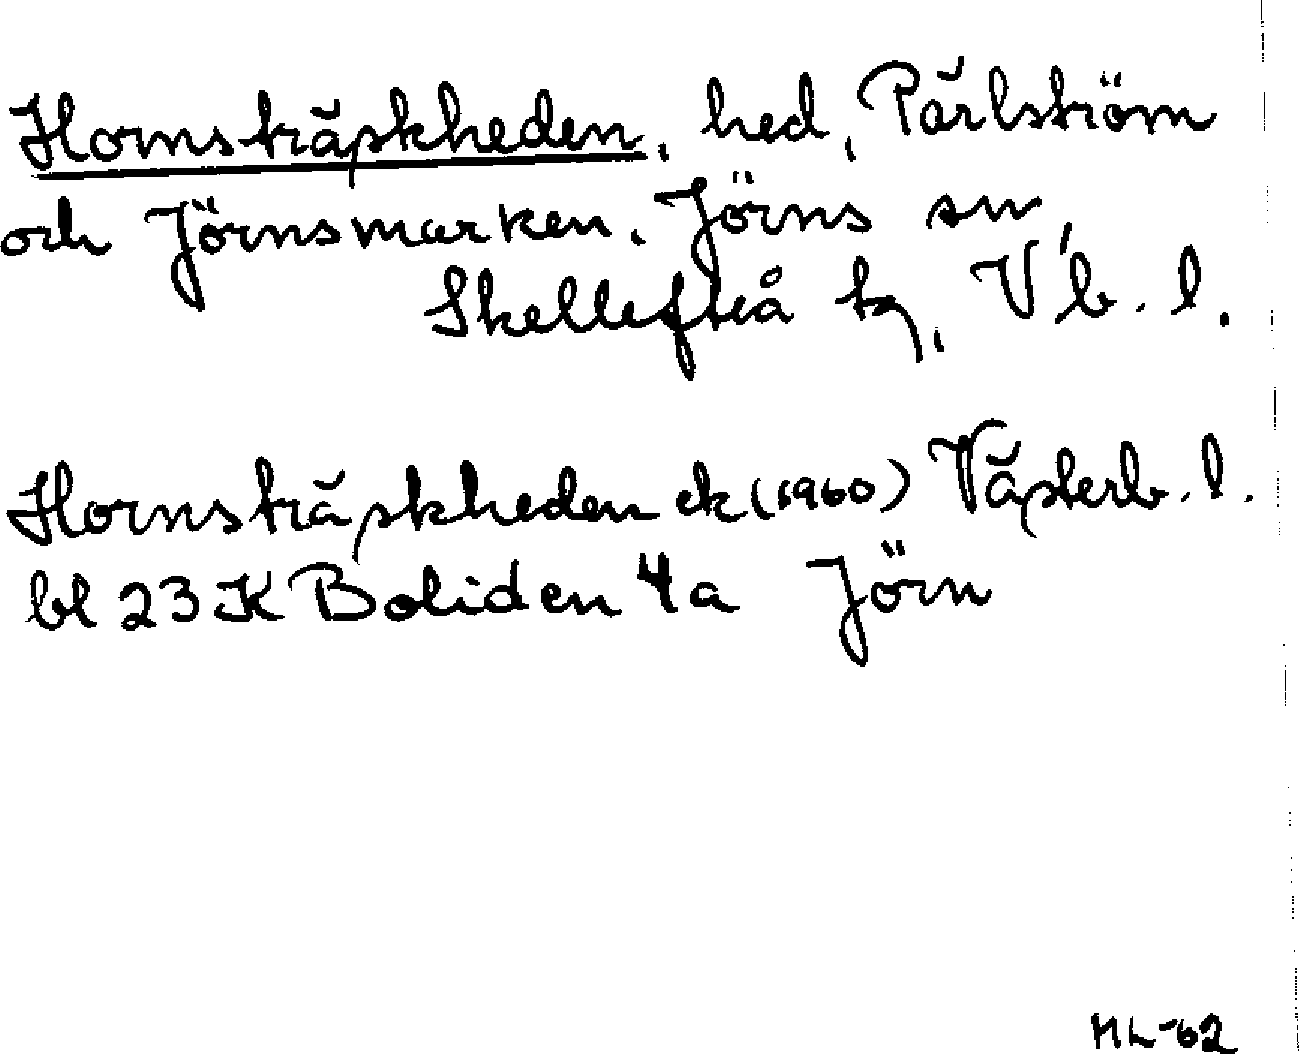 Hornsträskheden, hed, Pärlström
och Jörnsmarken. Jörns sn,
Skellefteå tg, V'b. l.
Hornsträskheden ek (1960) Västerb. l.
bl 23 K Boliden 4a Jörn
ML-62